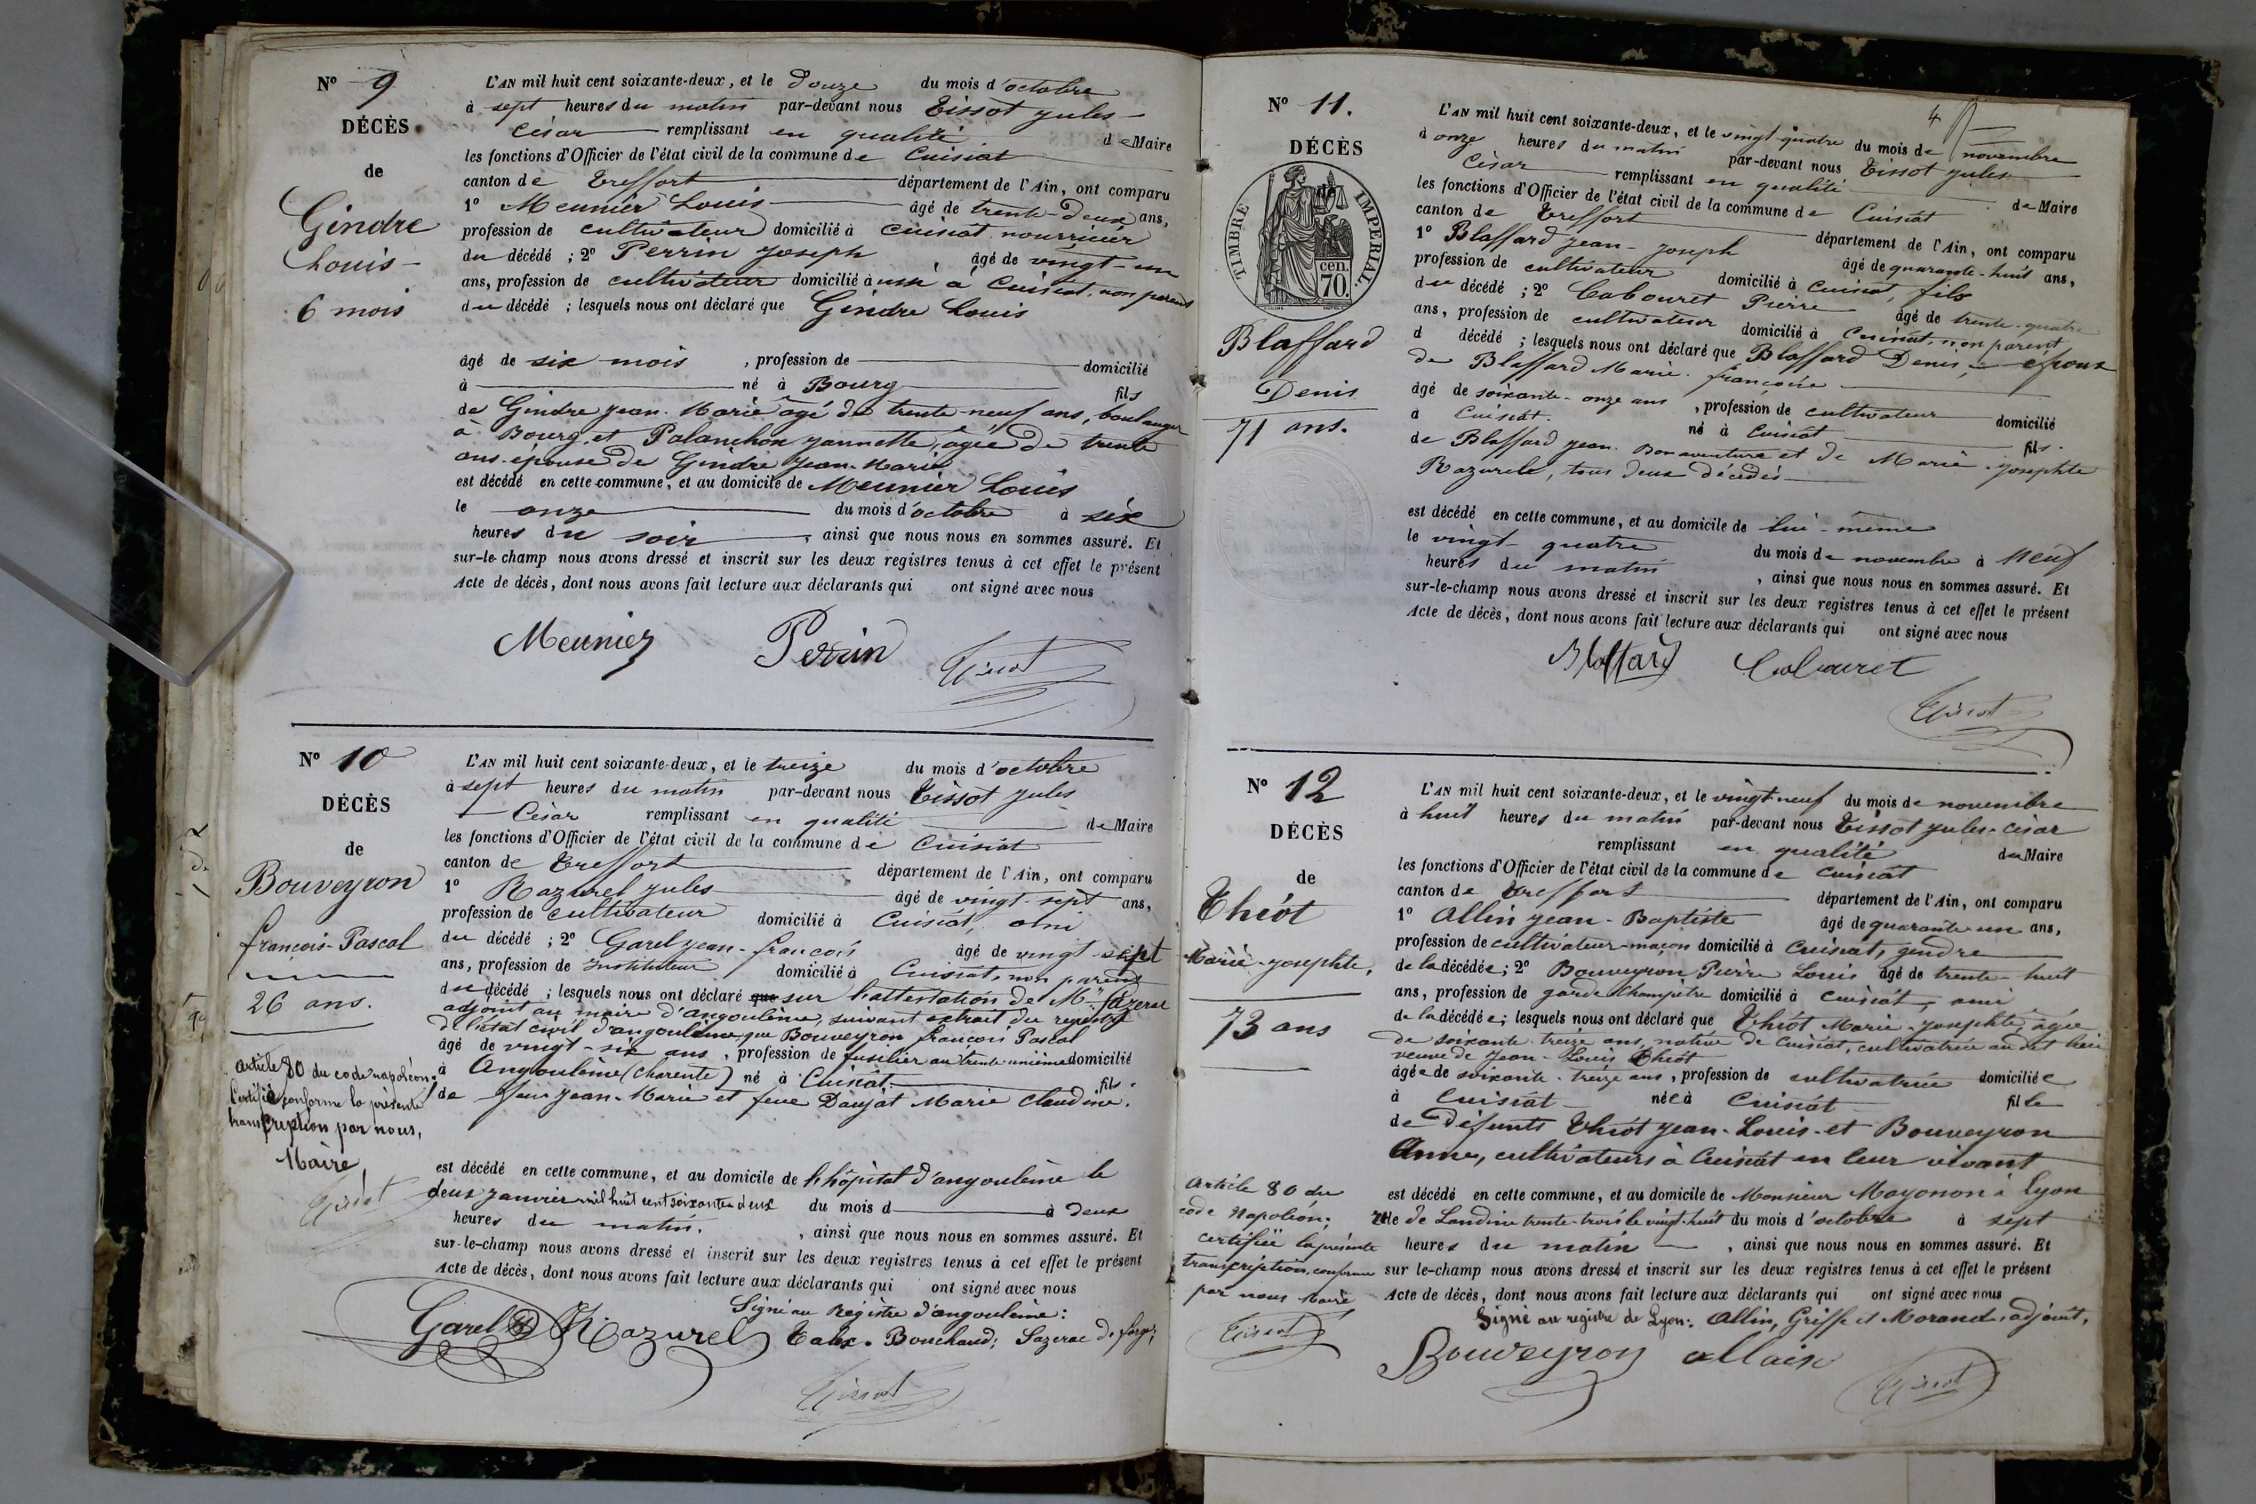 N° 9
DÉCÈS
de
Gindre
Louis
6 mois
L'AN mil huit cent soixante-deux, et le douze du mois d'octobre
à sept heures du matin par-devant nous Tissot Jules
César remplissant en qualité de Maire
les fonctions d'Officier de l'état civil de la commune de Cuisiat
canton de Treffort département de l'Ain, ont comparu
1° Meunier Louis âgé de trente-deux ans,
profession de cultivateur domicilié à Cuisiat nourricier
du décédé ; 2° Perrin Joseph âgé de vingt-un
ans, profession de cultivateur domicilié à Cuisiat, non parent
du décédé ; lesquels nous ont déclaré que Gindre Louis
âgé de six mois , profession de domicilié
à né à Bourg fils
de Gindre Jean-Marie âgé de trente-neuf ans, boulanger
à Bourg et Palanchon Jannette, âgée de trente
ans épouse de Gindre Jean-Marie
est décédé en cette commune, et au domicile de Meunier Louis
le onze du mois d'octobre à six
heures du soir , ainsi que nous nous en sommes assuré. Et
sur-le-champ nous avons dressé et inscrit sur les deux registres tenus à cet effet le présent
Acte de décès, dont nous avons fait lecture aux déclarants qui ont signé avec nous
Meunier Perrin Tissot
N° 10
DÉCÈS
de
Bouveyron
françois-Pascal
26 ans.
article 80 du code napoléon.
Certifié conforme la présente
transcription par nous,
Maire
Tissot
L'AN mil huit cent soixante-deux, et le treize du mois d'octobre
à sept heures du matin par-devant nous Tissot Jules
César remplissant en qualité de Maire
les fonctions d'Officier de l'état civil de la commune de Cuisiat
canton de Treffort département de l'Ain, ont comparu
1° Razurel Jules âgé de vingt-sept ans,
profession de cultivateur domicilié à Cuisiat, ami
du décédé ; 2° Garel Jean-françois âgé de vingt-sept
ans, profession de Instituteur domicilié à Cuisiat, non parent
du décédé ; lesquels nous ont déclaré que sur l'attestation de Mr Sazerac
adjoint au maire d'angoulême, suivant extrait du registre
de l'état civil d'angoulême que Bouveyron françois Pascal
âgé de vingt-six ans , profession de fusilier au trente-unième domicilié
à Angoulême (charente) né à Cuisiat fils
de feu Jean-Marie et feue Daujat Marie Claudine.
est décédé en cette commune, et au domicile de l'hôpital d'angoulême le
deux janvier mil huit cent soixante deux du mois d à deux
heures du matin. , ainsi que nous nous en sommes assuré. Et
sur-le-champ nous avons dressé et inscrit sur les deux registres tenus à cet effet le présent
Acte de décès, dont nous avons fait lecture aux déclarants qui ont signé avec nous
Signé au Registre d'angoulême :
Garel Razurel Bouchaud; Sazerac de forges
Tissot
4
N° 11.
DÉCÈS
TIMBRE IMPERIAL.
cen.
70.
Blaffard
Denis
71 ans.
L'AN mil huit cent soixante-deux, et le vingt-quatre du mois de novembre
à onze heures du matin par-devant nous Tissot Jules
César remplissant en qualité de Maire
les fonctions d'Officier de l'état civil de la commune de Cuisiat
canton de Treffort département de l'Ain, ont comparu
1° Blaffard Jean-Joseph âgé de quarante-huit ans,
profession de cultivateur domicilié à Cuisiat, fils
du décédé ; 2° Cabouret Pierre âgé de trente-quatre
ans, profession de cultivateur domicilié à Cuisiat, non parent
d décédé ; lesquels nous ont déclaré que Blaffard Denis, époux
de Blaffard Marie françoise
âgé de soixante-onze ans , profession de cultivateur domicilié
à Cuisiat. né à Cuisiat fils
de Blaffard Jean Bonaventure et de Marie-Josephte
Razurel, tous deux décédés
est décédé en cette commune, et au domicile de lui-même
le vingt quatre du mois de novembre à Neuf
heures du matin , ainsi que nous nous en sommes assuré. Et
sur-le-champ nous avons dressé et inscrit sur les deux registres tenus à cet effet le présent
Acte de décès, dont nous avons fait lecture aux déclarants qui ont signé avec nous
Blaffard Cabouret
Tissot
N° 12
DÉCÈS
de
Thiot
Marie-Josephte,
73 ans
Article 80 du
code Napoléon;
certifiée la présente
transcription conforme
par nous Maire
Tissot
L'AN mil huit cent soixante-deux, et le vingt-neuf du mois de novembre
à huit heures du matin par-devant nous Tissot Jules-César
remplissant en qualité de Maire
les fonctions d'Officier de l'état civil de la commune de Cuisiat
canton de Treffort département de l'Ain, ont comparu
1° Allin Jean-Baptiste âgé de quarante-un ans,
profession de cultivateur-maçon domicilié à Cuisiat, gendre
de la décédée ; 2° Bouveyron Pierre Louis, âgé de trente-huit
ans, profession de garde Champêtre domicilié à Cuisiat, ami
de la décédée ; lesquels nous ont déclaré que Thiot Marie-Josephte, âgée
de soixante-treize ans, native de Cuisiat, cultivatrice au dit lieu
veuve de Jean-Louis Thiot
âgée de soixante-treize ans , profession de cultivatrice domiciliée
à Cuisiat née à Cuisiat fille
de défunts Thiot Jean-Louis et Bouveyron
Anne, cultivateurs à Cuisiat en leur vivant
est décédé en cette commune, et au domicile de Monsieur Moyonon à Lyon
rue de Sandine trente-trois le vingt-huit du mois d'octobre à sept
heures du matin , ainsi que nous nous en sommes assuré. Et
sur le-champ nous avons dressé et inscrit sur les deux registres tenus à cet effet le présent
Acte de décès, dont nous avons fait lecture aux déclarants qui ont signé avec nous
Signé au registre de Lyon : Allin, Griffe et Morand, adjoint,
Bouveyron allain
Tissot